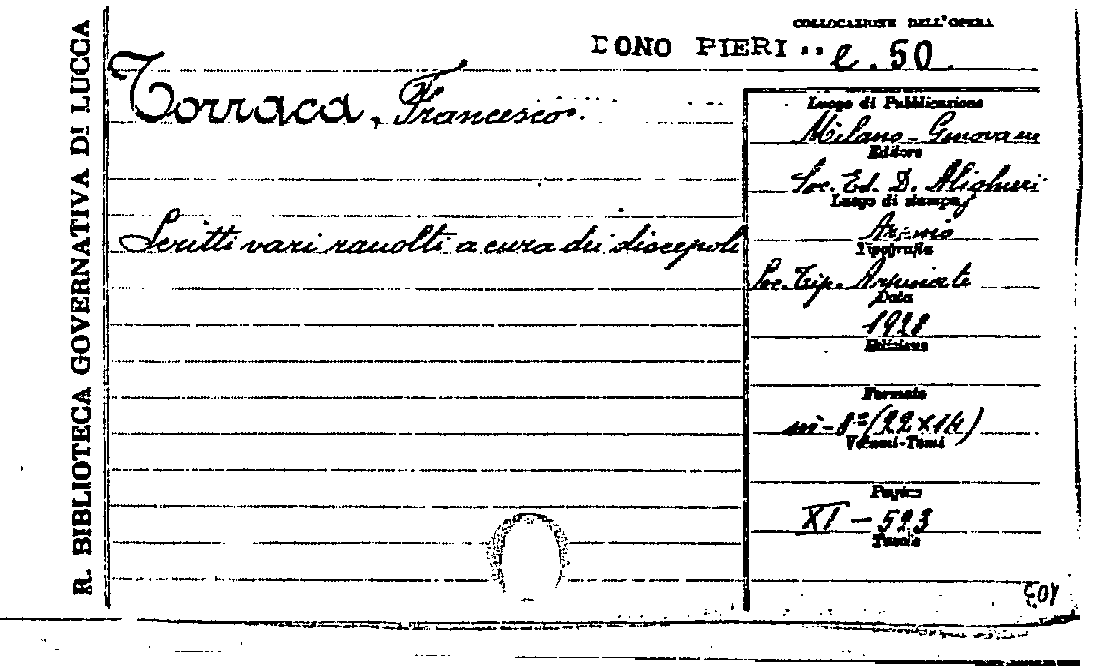 COLLOCAZIONE DELL'OPERA
DONO PIERI .. e. 50
R. BIBLIOTECA GOVERNATIVA DI LUCCA
Torraca, Francesco.
Scritti vari raccolti a cura dei discepoli
Luogo di Pubblicazione
Milano - Genova
Editore
Soc. Ed. D. Alighieri
Luogo di stampa
Tipografia
Soc. Tip.
Data
1928
Edizione
Formato
in-8° (22x14)
Volumi-Tomi
Pagine
XI - 523
Tavole